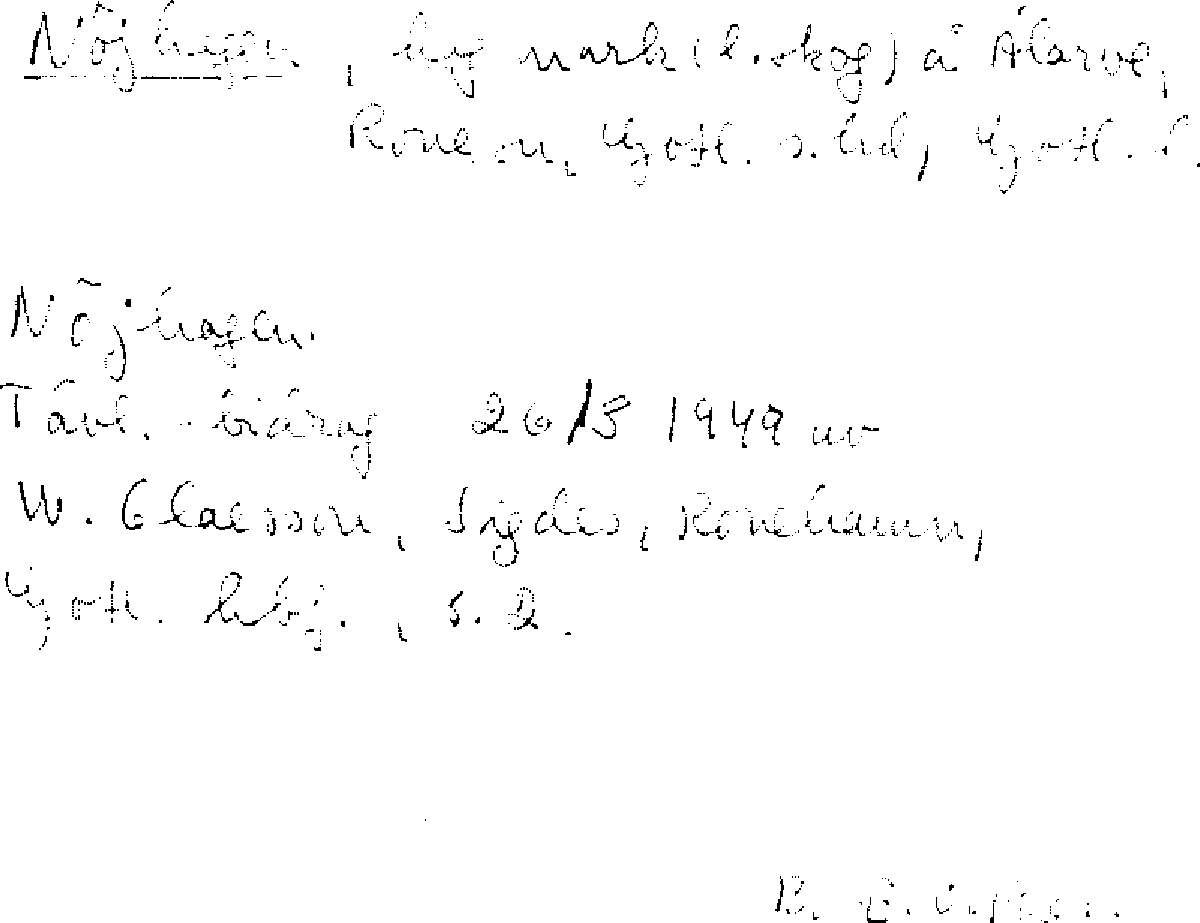 Nöjhagen, hög mark (l. skog) å Alarve,
Rone sn, Gotl. s. hd, Gotl. l.
Nöjhagen.
Tävl.-bidrag 26/3 1949 av
W. Claesson, Sigdes, Ronehamn,
Gotl. hbf., s. 2.
B. E.